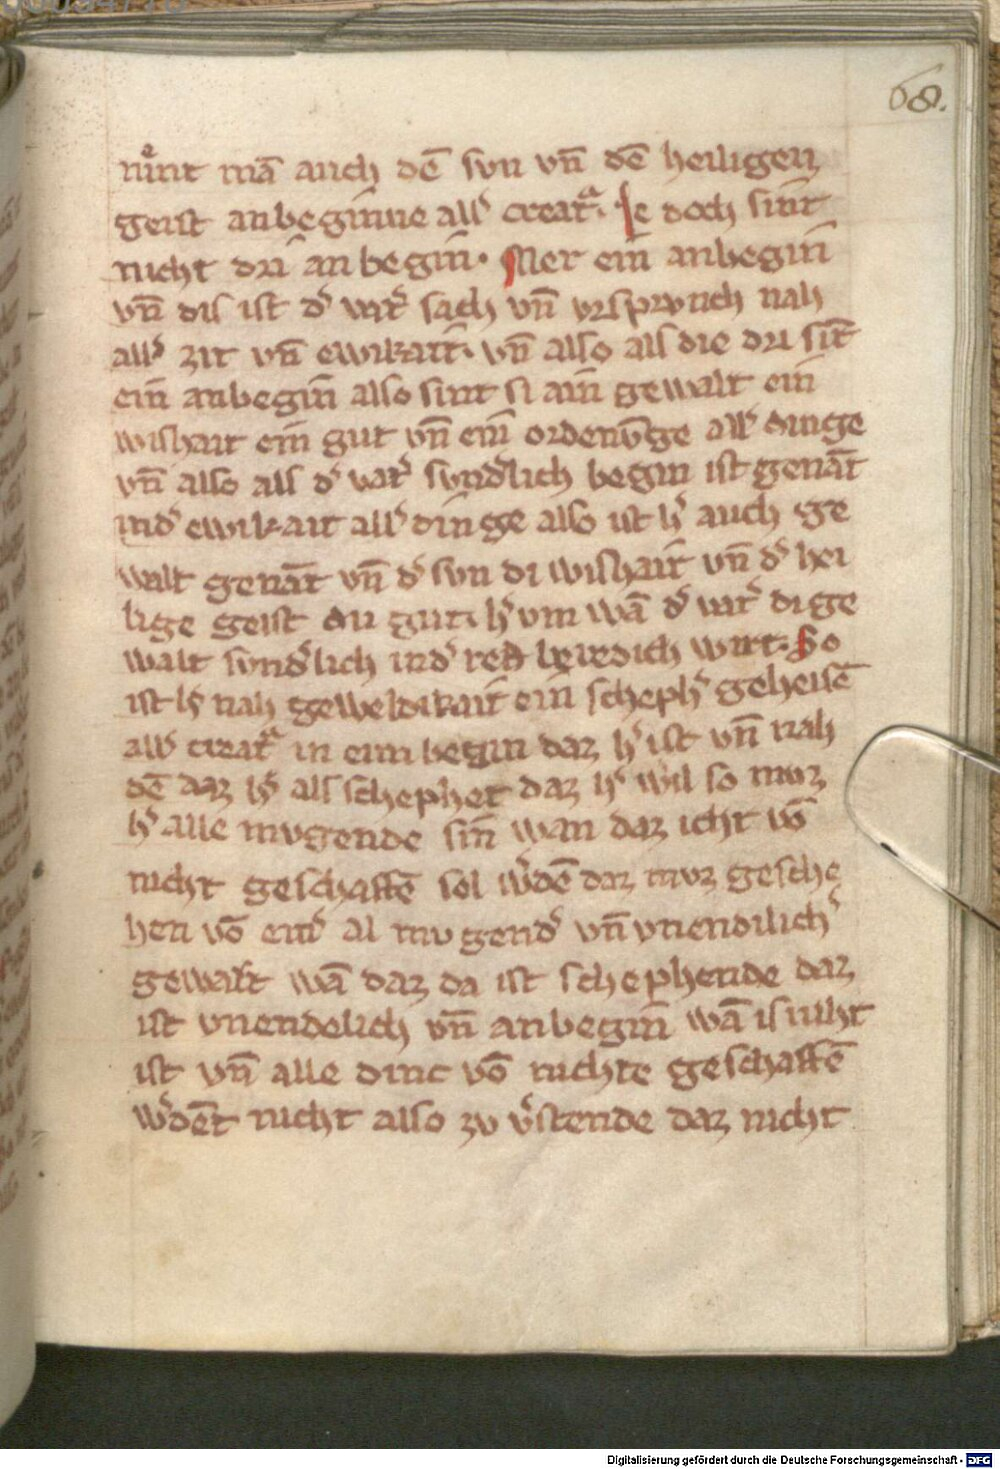 68.
nimt mā auch dē svn vn̄ dē heiligen
geist anbeginne all' creatᵃ. Ie doch sint
nicht dri anbegin̄. Mer ein anbegin̄
vn̄ dis ist d' vat' sach vn̄ vrsprvnch nah
all' zit vn̄ ewikait. vn̄ also als die dri sīt
ein anbegin̄ also sint si ain gewalt ein
wishait ein gut vn̄ ein ordenv̄ge all' dinge
vn̄ also als d' vat' svnd'lich begin ist genāt
ind' ewikait all' dinge also ist h' auch ge
walt genāt vn̄ d' svn di wishait vn̄ d' hei
lige geist du gut. h' vm wā d' vat' di ge
walt svnd'lich ind' red wirt. So
ist h' nah geweldikait ein scheph' geheisē
all' creatᵃ in eim begin daz h' ist vn̄ nah
dē daz h' als schepher daz h' wil so mvz
h' alle mvgende sin wan daz icht vō
nicht geschaffē sol w'dē daz mvz gesche
hen vō ein' al mvgend' vn̄ vnendilich'
gewalt wā daz da ist schephende daz
ist vnendelich vn̄ anbegin̄ wā is niht
ist vn̄ alle dinc vō nichte geschaffē
w'dēt nicht also zv v'stende daz nicht
Digitalisierung gefördert durch die Deutsche Forschungsgemeinschaft - DFG